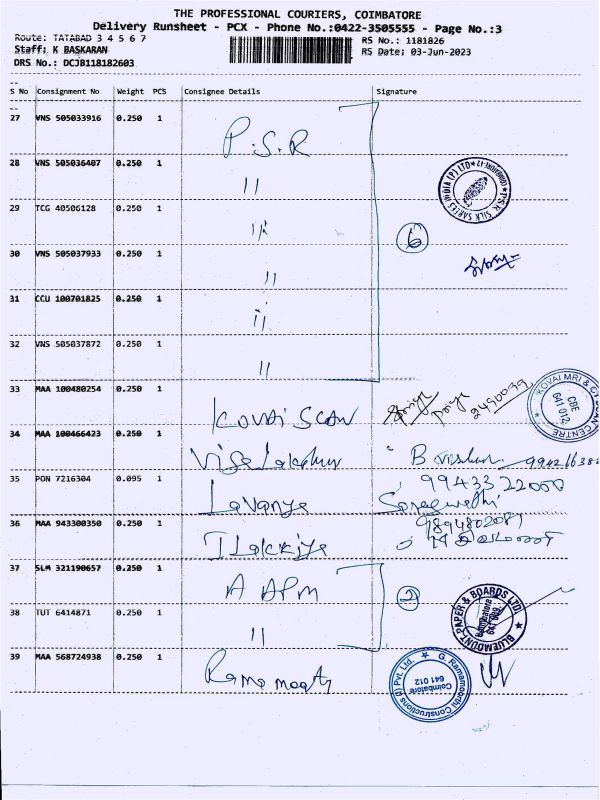 THE PROFESSIONAL COURIERS, COIMBATORE
Delivery Runsheet - PCX - Phone No.:0422-3505555 - Page No.:3
Route: TATABAD 3 4 5 6 7
RS No.: 1181826
Staff: K BASKARAN
RS Date: 03-Jun-2023
DRS No.: DCJB118182603
S No Consignment No Weight PCS Consignee Details Signature
27 VNS 505033916 0.250 1 P.S.R
28 VNS 505036407 0.250 1 "
29 TCG 40506128 0.250 1 "
6
30 VNS 505037933 0.250 1 "
31 CCU 100701825 0.250 1 "
32 VNS 505037872 0.250 1 "
P.S.R. SILK SAREES INDIA (P) LTD
33 MAA 100480254 0.250 1 KOVAI SCAN Priya 2490039
KOVAI MRI & CT SCAN CENTRE
CBE
641 012
34 MAA 100466423 0.250 1
35 PON 7216304 0.095 1 Lavanya 9943322000
36 MAA 943300350 0.250 1 9894802089
37 SLM 321190657 0.250 1 A APM
2
38 TUT 6414871 0.250 1 "
BLUEMOUNT PAPER & BOARDS LTD.
Coimbatore
39 MAA 568724938 0.250 1 Ramamoorthy
G. Ramamoorthi Constructions (I) Pvt. Ltd.
Coimbatore
641 012